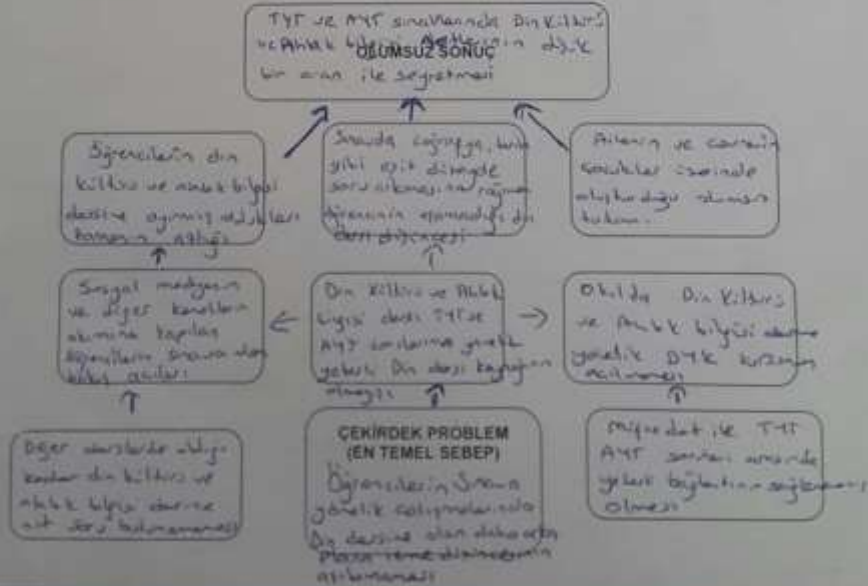 TYT ve AYT sınavlarında Din Kültürü
ve Ahlak bilgisi Netlerinin düşük
OLUMSUZ SONUÇ
bir oran ile seyretmesi
Öğrencilerin din
kültürü ve ahlak bilgisi
dersine ayırmış oldukları
zamanın azlığı
Sınavda coğrafya,
gibi eşit düzeyde
soru çıkmasına rağmen
öğrencinin din
dersi düşüncesi
Ailenin ve çevrenin
çocuklar üzerinde
oluşturduğu olumsuz
tutum.
Sosyal medyanın
ve diğer kanalların
akımına kapılan
öğrencilerin sınava olan
bakış açıları
Din Kültürü ve Ahlak
bilgisi dersi TYT ve
AYT sınavlarına yönelik
yeterli Din dersi kaynağının
olmayışı
Okulda Din Kültürü
ve Ahlak bilgisi dersine
yönelik DYK kursunun
açılmaması
Diğer derslerde olduğu
kadar din kültürü ve
ahlak bilgisi dersine
ait soru bulunmaması
ÇEKİRDEK PROBLEM
(EN TEMEL SEBEP)
Öğrencilerin Sınava
yönelik çalışmalarında
Din dersine olan daha
düşüncesinin
Müfredat ile TYT
AYT soruları arasında
yeterli bağlantının
olması